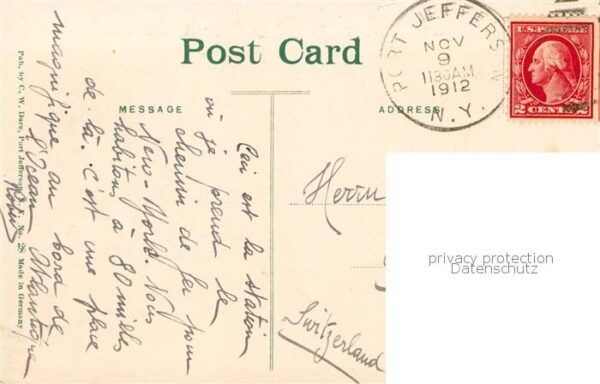 Post Card
MESSAGE
ADDRESS
PORT JEFFERSON
NOV
9
1130AM
1912
N.Y.
U.S. POSTAGE
2 CENTS 2
Ceci est la station
où je prend le
chemin de fer pour
New-York. Nous
habitons à 80 milles
de là. C'est une place
magnifique au bord de
l'Ocean Atlantique
Herrn
Switzerland
privacy protection
Datenschutz
Pub. by C. W. Dare, Port Jefferson, N. Y. No. 28 Made in Germany